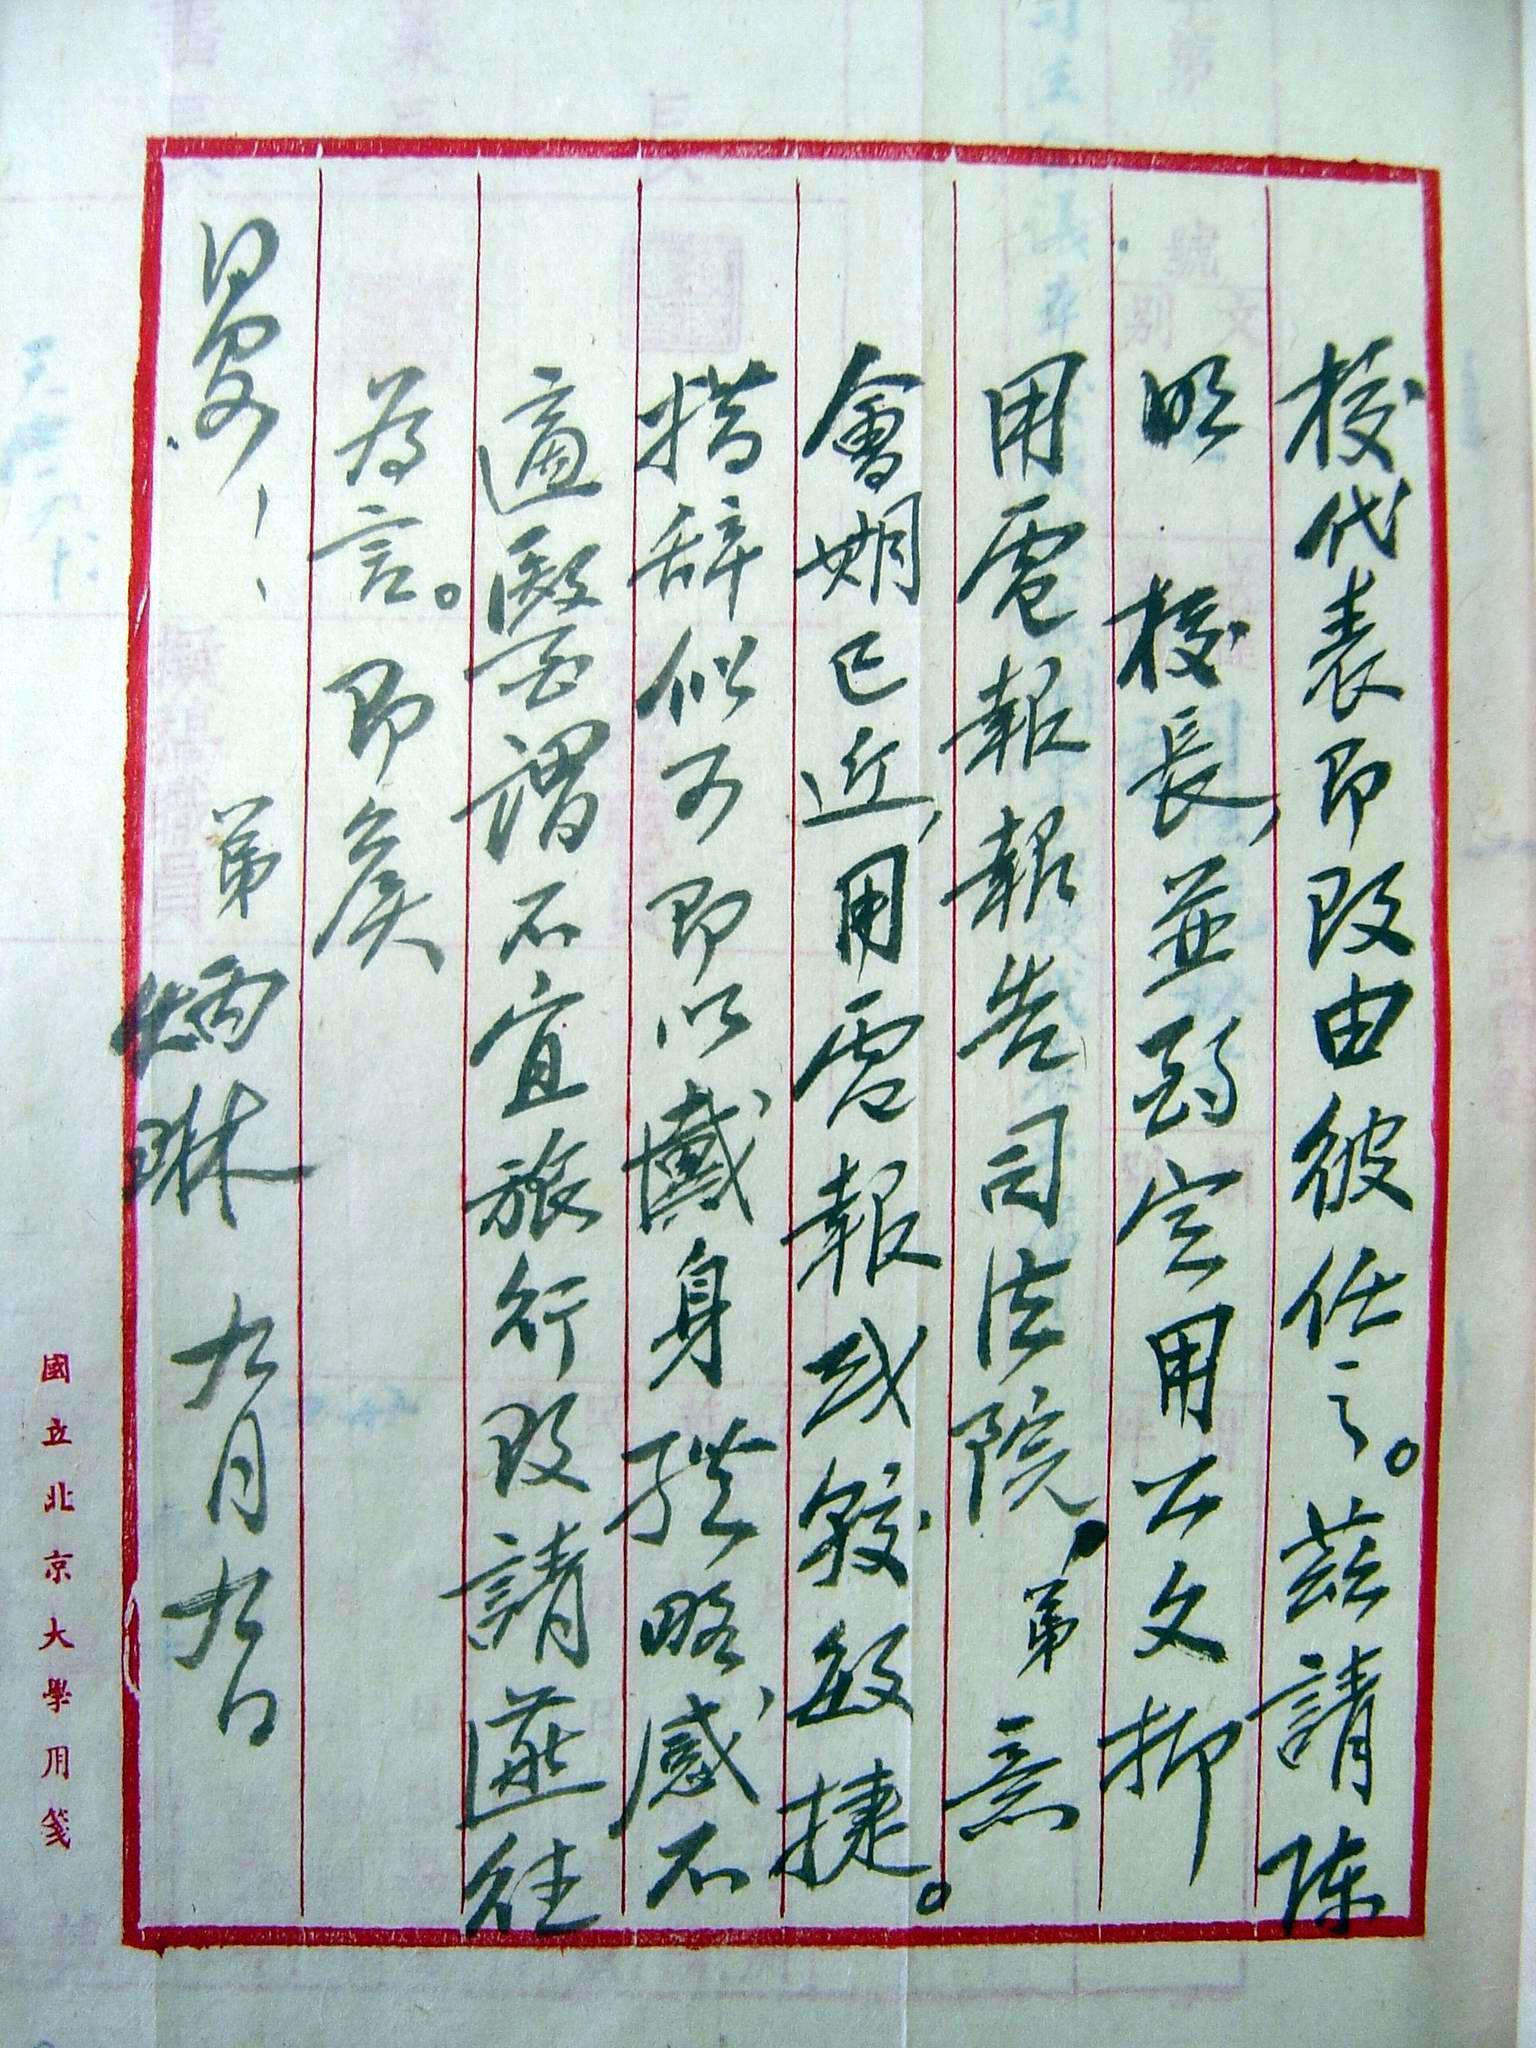 校代表即改由彼任之。茲請陳
明 校長，並酌定用公文抑
用電報報告司法院。弟意
會期已近，用電報或較敏捷。
措辭似可即以戴身體略感不
適醫謂不宜旅行改請往
為言。即矦
日安！！ 弟炳琳 九月九日
國立北京大學用箋